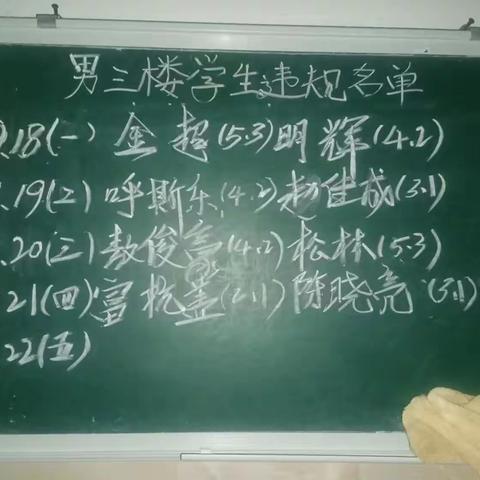 男三楼学生违规名单
9.18(一) 金超(5.3)明辉(4.2)
.19(二) 呼斯乐(4.2)赵佳成(3.1)
.20(三)敖俊富(4.2)松林(5.3)
21(四)富杭盖(2.1)陈晓亮(3.1)
22(五)